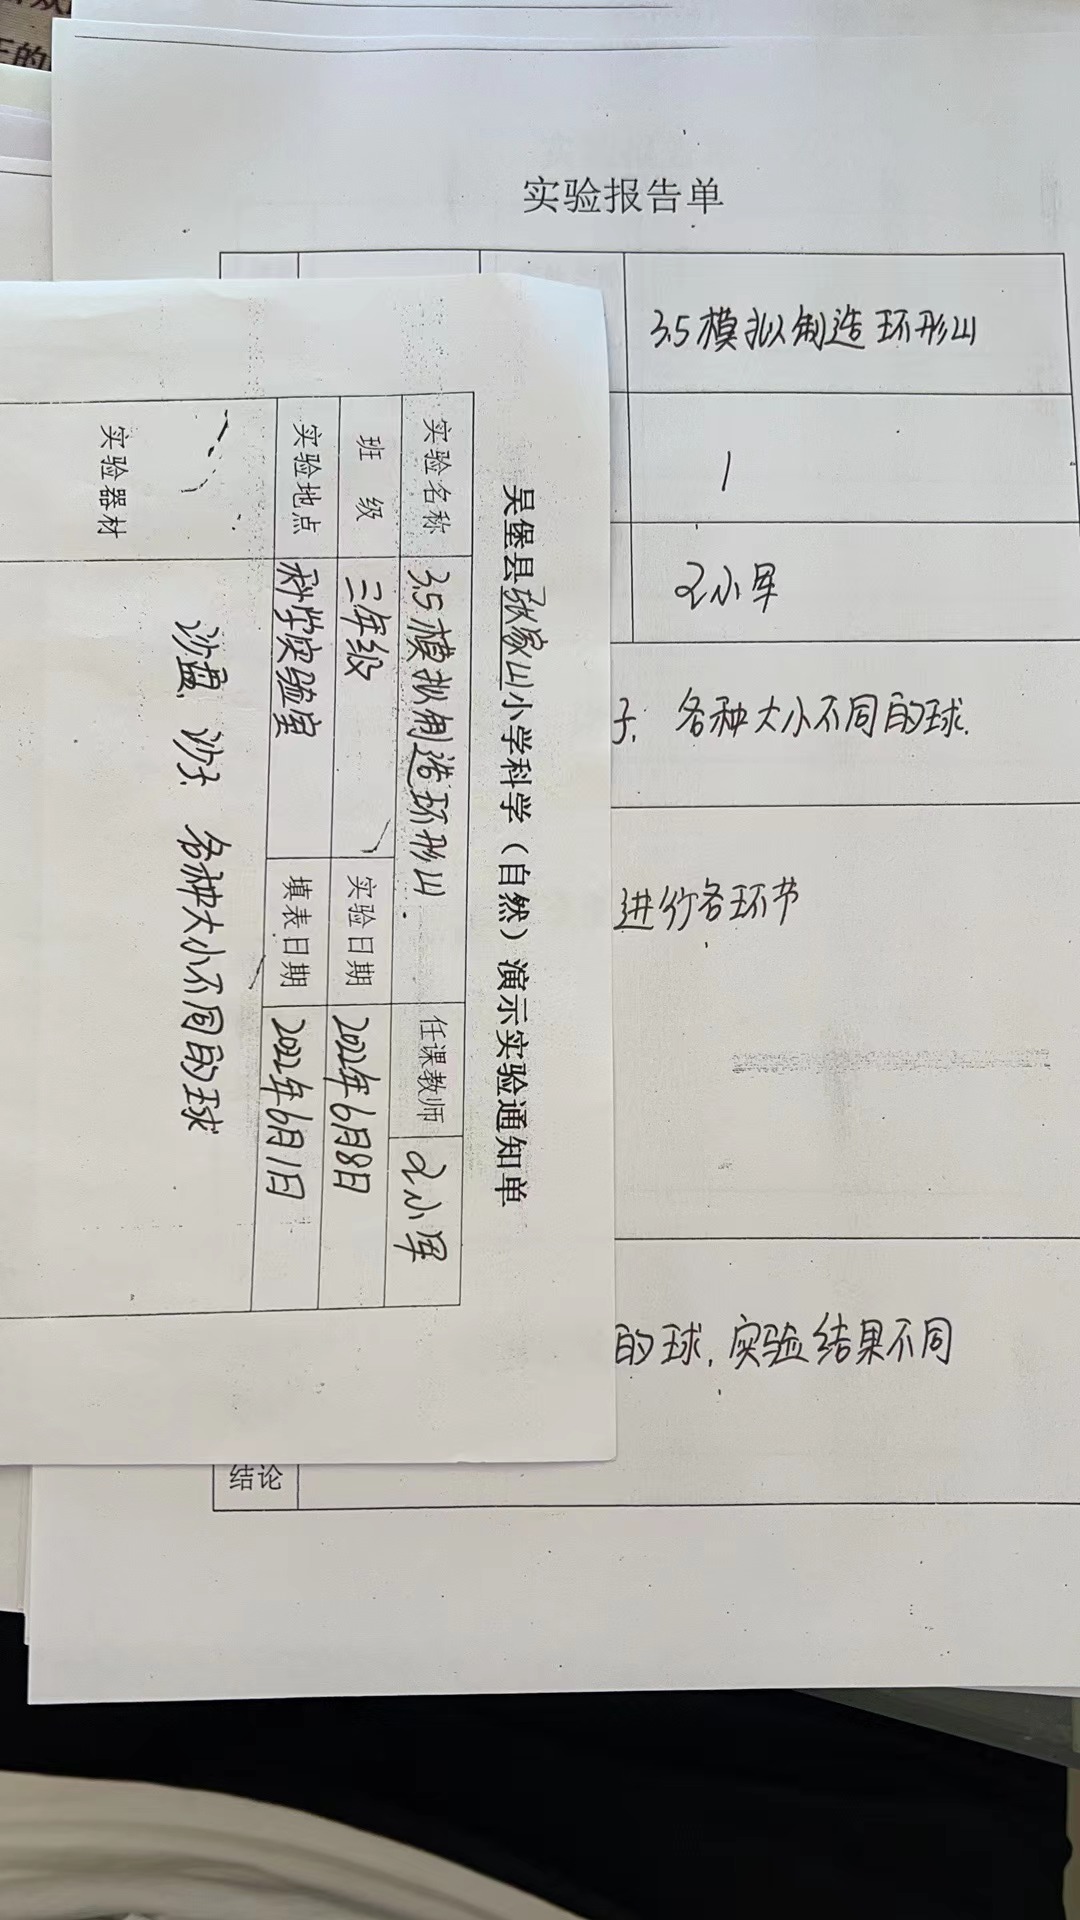 王的
实验报告单
3.5模拟制造环形山
1
王小军
子、各种大小不同的球.
进行各环节
的球,实验结果不同
结论
吴堡县张家山小学科学（自然）演示实验通知单
实验名称 3.5模拟制造环形山 任课教师 王小军
班级 三年级 实验日期 2022年6月8日
实验地点 科学实验室 填表日期 2022年6月1日
实验器材 沙盘、沙子、各种大小不同的球